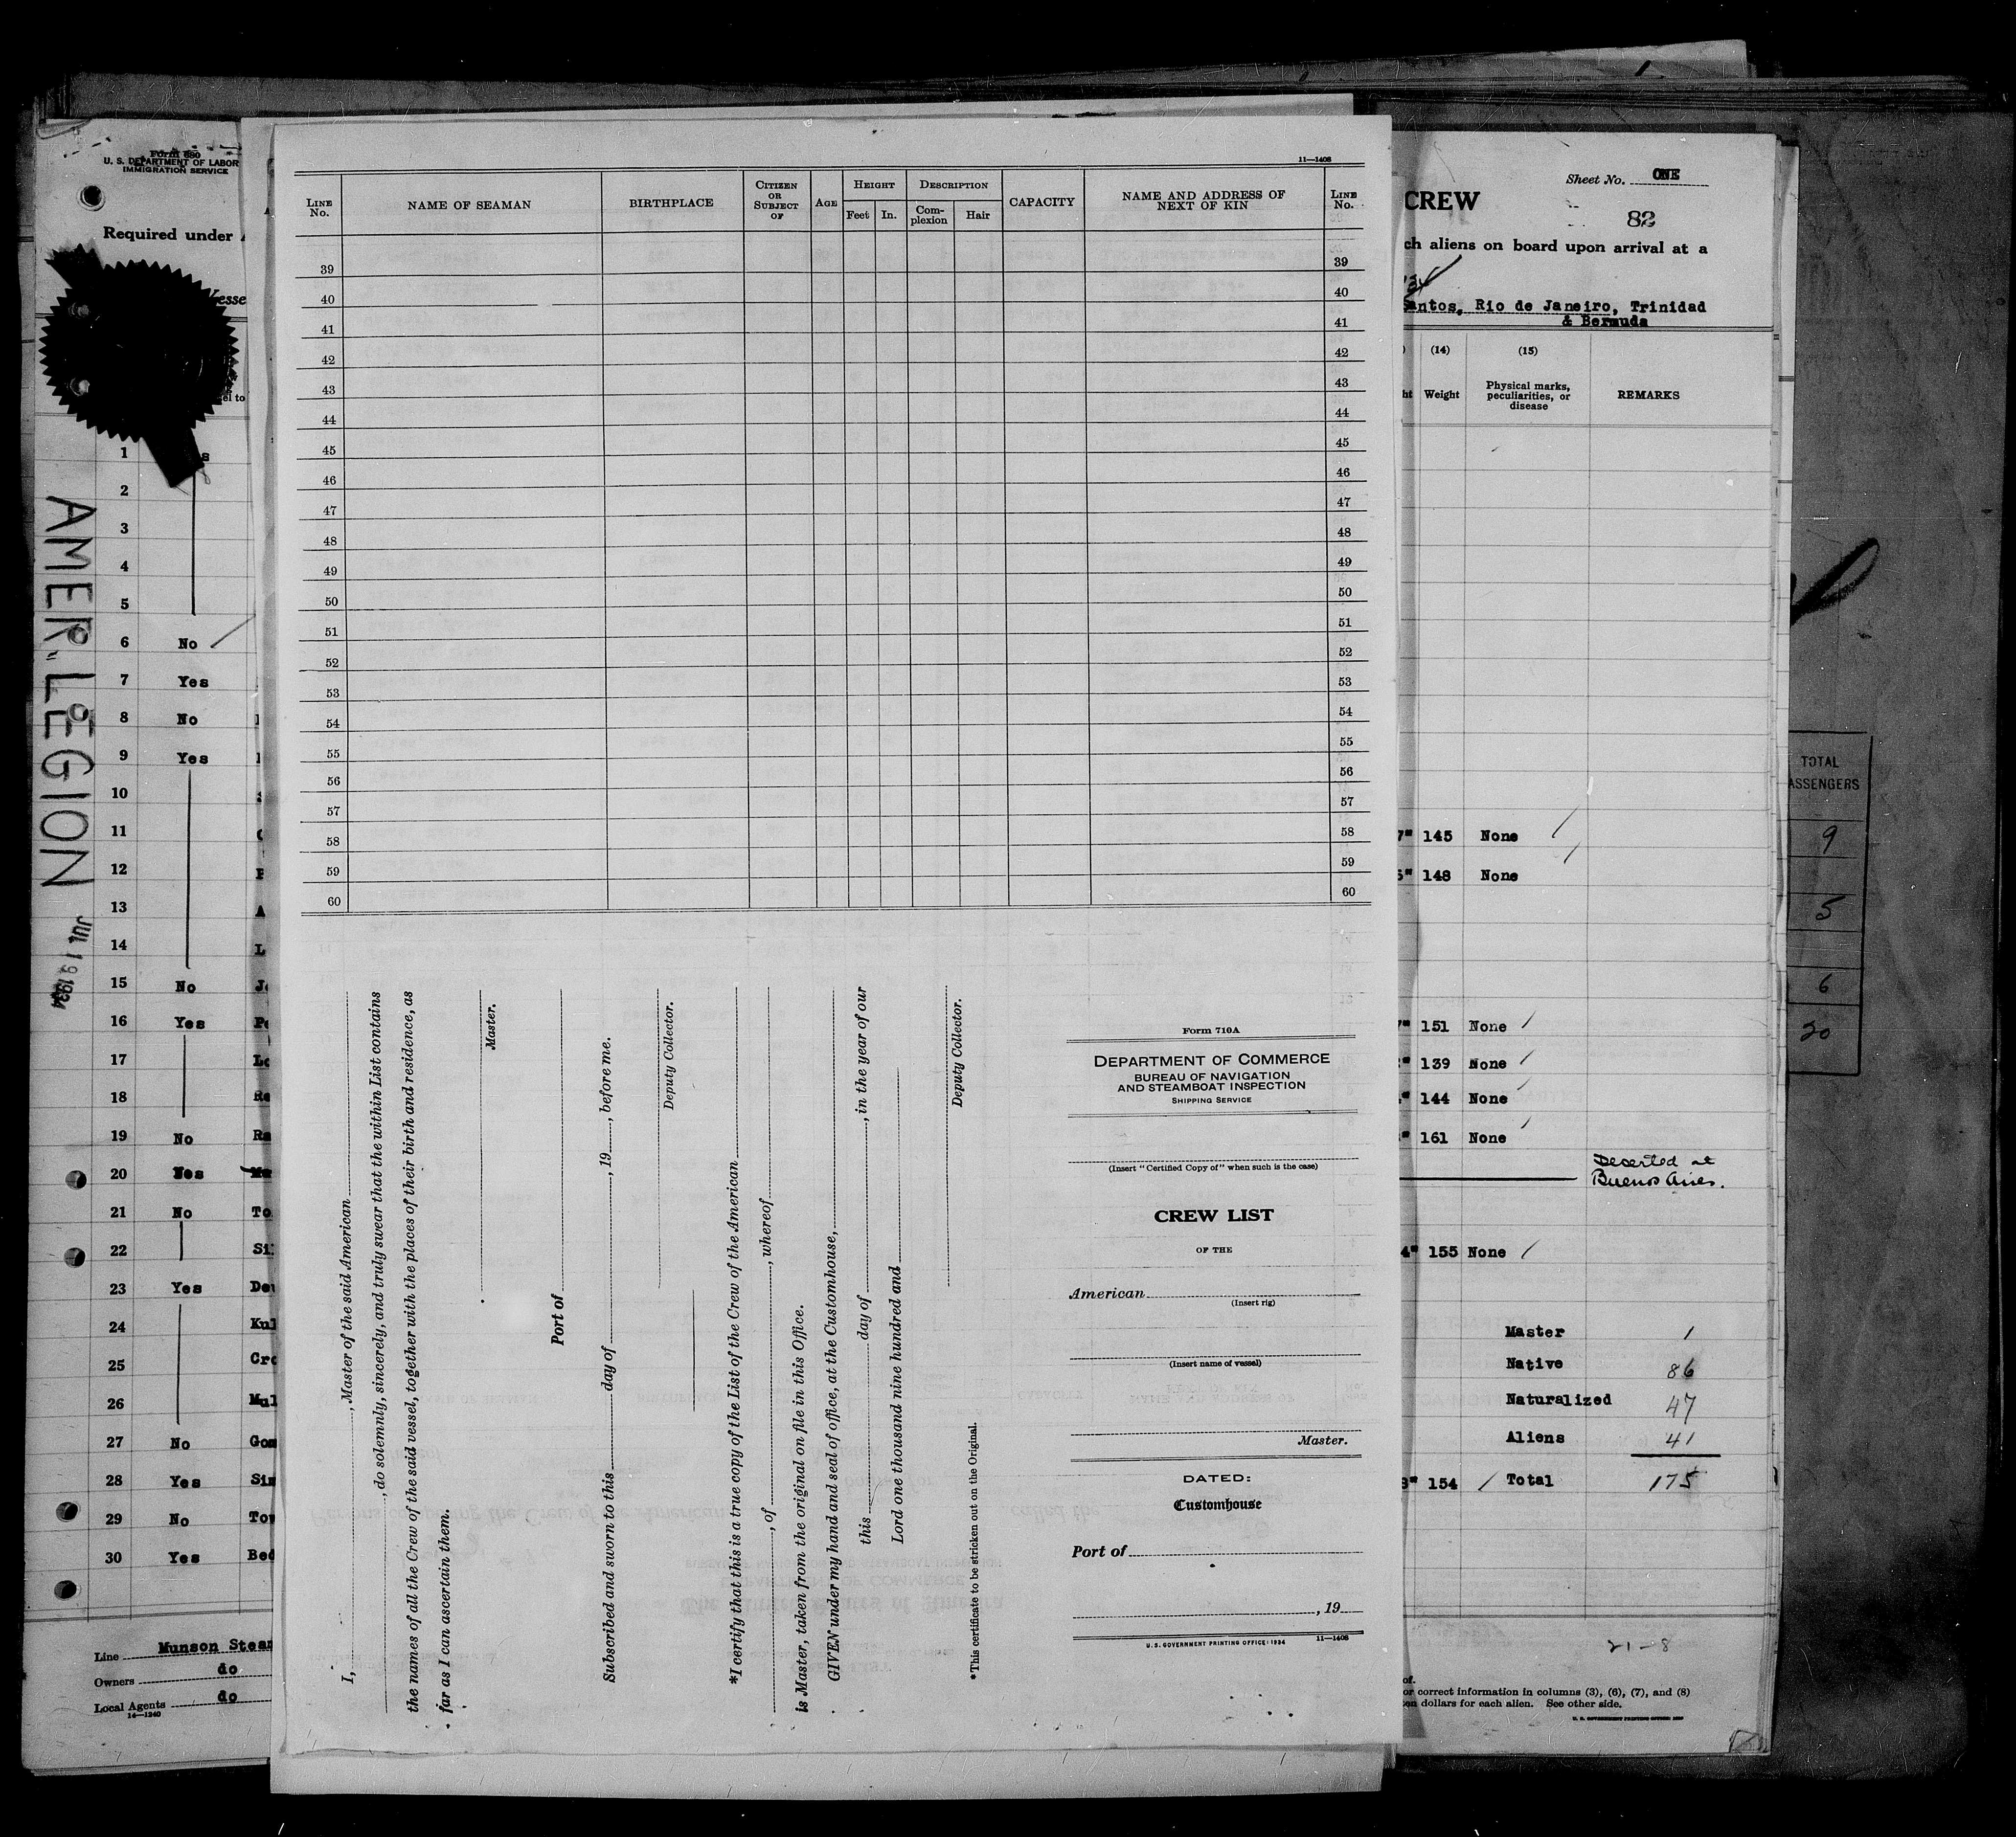 Form 680
U. S. DEPARTMENT OF LABOR
IMMIGRATION SERVICE
Required under
Vesse
el to
1
2
3
4
5
6 No
7 Yes
8 No
9 Yes
10
11
12
13
14
15 No
16 Yes
17
18
19 No
20 Yes
21 No
22
23 Yes
24
25
26
27 No
28 Yes
29 No
30 Yes
AMER. LEGION
JUL 19 1934
Line Munson Steam
Owners do
Local Agents do
14—1240
11—1408
LINE No. NAME OF SEAMAN BIRTHPLACE CITIZEN OR SUBJECT OF AGE HEIGHT Feet In. DESCRIPTION Complexion Hair CAPACITY NAME AND ADDRESS OF NEXT OF KIN LINE No.
39 39
40 40
41 41
42 42
43 43
44 44
45 45
46 46
47 47
48 48
49 49
50 50
51 51
52 52
53 53
54 54
55 55
56 56
57 57
58 58
59 59
60 60
I, , Master of the said American
, do solemnly, sincerely, and truly swear that the within List contains
the names of all the Crew of the said vessel, together with the places of their birth and residence, as
far as I can ascertain them.
Master.
Port of
Subscribed and sworn to this day of , 19 , before me.
Deputy Collector.
*I certify that this is a true copy of the List of the Crew of the American
, of , whereof
is Master, taken from the original on file in this Office.
GIVEN under my hand and seal of office, at the Customhouse,
this day of , in the year of our
Lord one thousand nine hundred and
Deputy Collector.
*This certificate to be stricken out on the Original.
Form 710A
DEPARTMENT OF COMMERCE
BUREAU OF NAVIGATION
AND STEAMBOAT INSPECTION
SHIPPING SERVICE
(Insert "Certified Copy of" when such is the case)
CREW LIST
OF THE
American
(Insert rig)
(Insert name of vessel)
Master.
DATED:
Customhouse
Port of
, 19
U. S. GOVERNMENT PRINTING OFFICE: 1934 11—1408
Sheet No. ONE
CREW
82
ch aliens on board upon arrival at a
Santos, Rio de Janeiro, Trinidad
& Bermuda
(14) (15)
ht Weight Physical marks, peculiarities, or disease REMARKS
7" 145 None
148 None
151 None
139 None
144 None
161 None
Deserted at
Buenos Aires.
4" 155 None
Master 1
Native 86
Naturalized 47
Aliens 41
154 Total 175
21-8
of.
or correct information in columns (3), (6), (7), and (8)
ten dollars for each alien. See other side.
U. S. GOVERNMENT PRINTING OFFICE
TOTAL
ASSENGERS
9
5
6
20